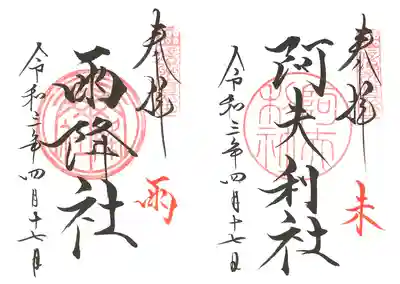 奉拝
阿夫利社
令和三年四月十七日
奉拝
雨
雨降社
令和三年四月十七日